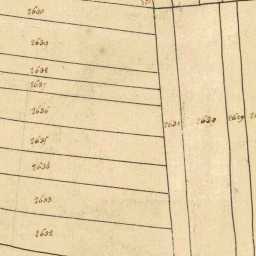 2640
2639
2638
2637
2636
2635
2634
2633
2632
2631
2630
2629